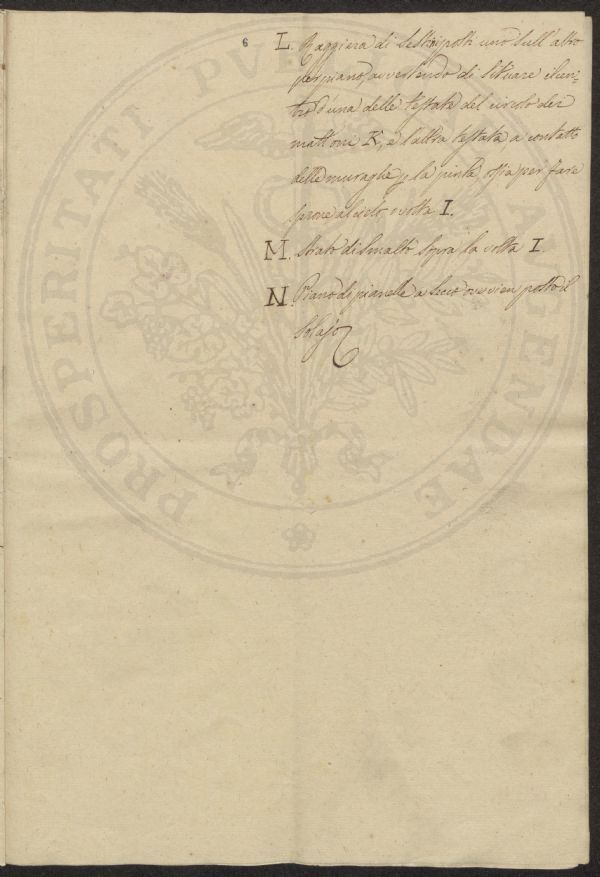 6 L. Raggiera di Sestoni posti uno sull'altro
per piano, avvertendo di situare il cen-
tro d'una delle testate del circolo dei
mattoni K, e l'altra testata a contatto
delle muraglie, la per fare
al volta I.
M. Strato di Smalto sopra la volta I.
N. Piano di pianelle a secco ove vien posto il
Solajo
PROSPERITATI PUBLICAE AUGENDAE